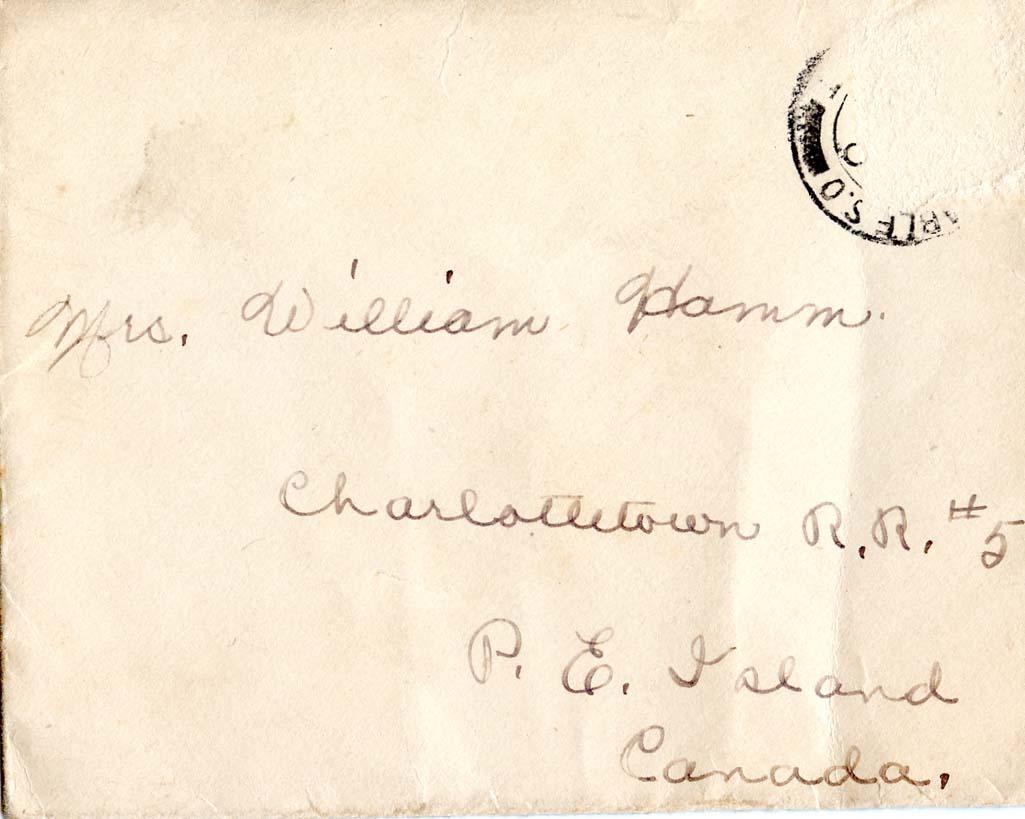 S.O
Mrs. William Hamm.
Charlottetown R.R. #5
P. E. Island
Canada.